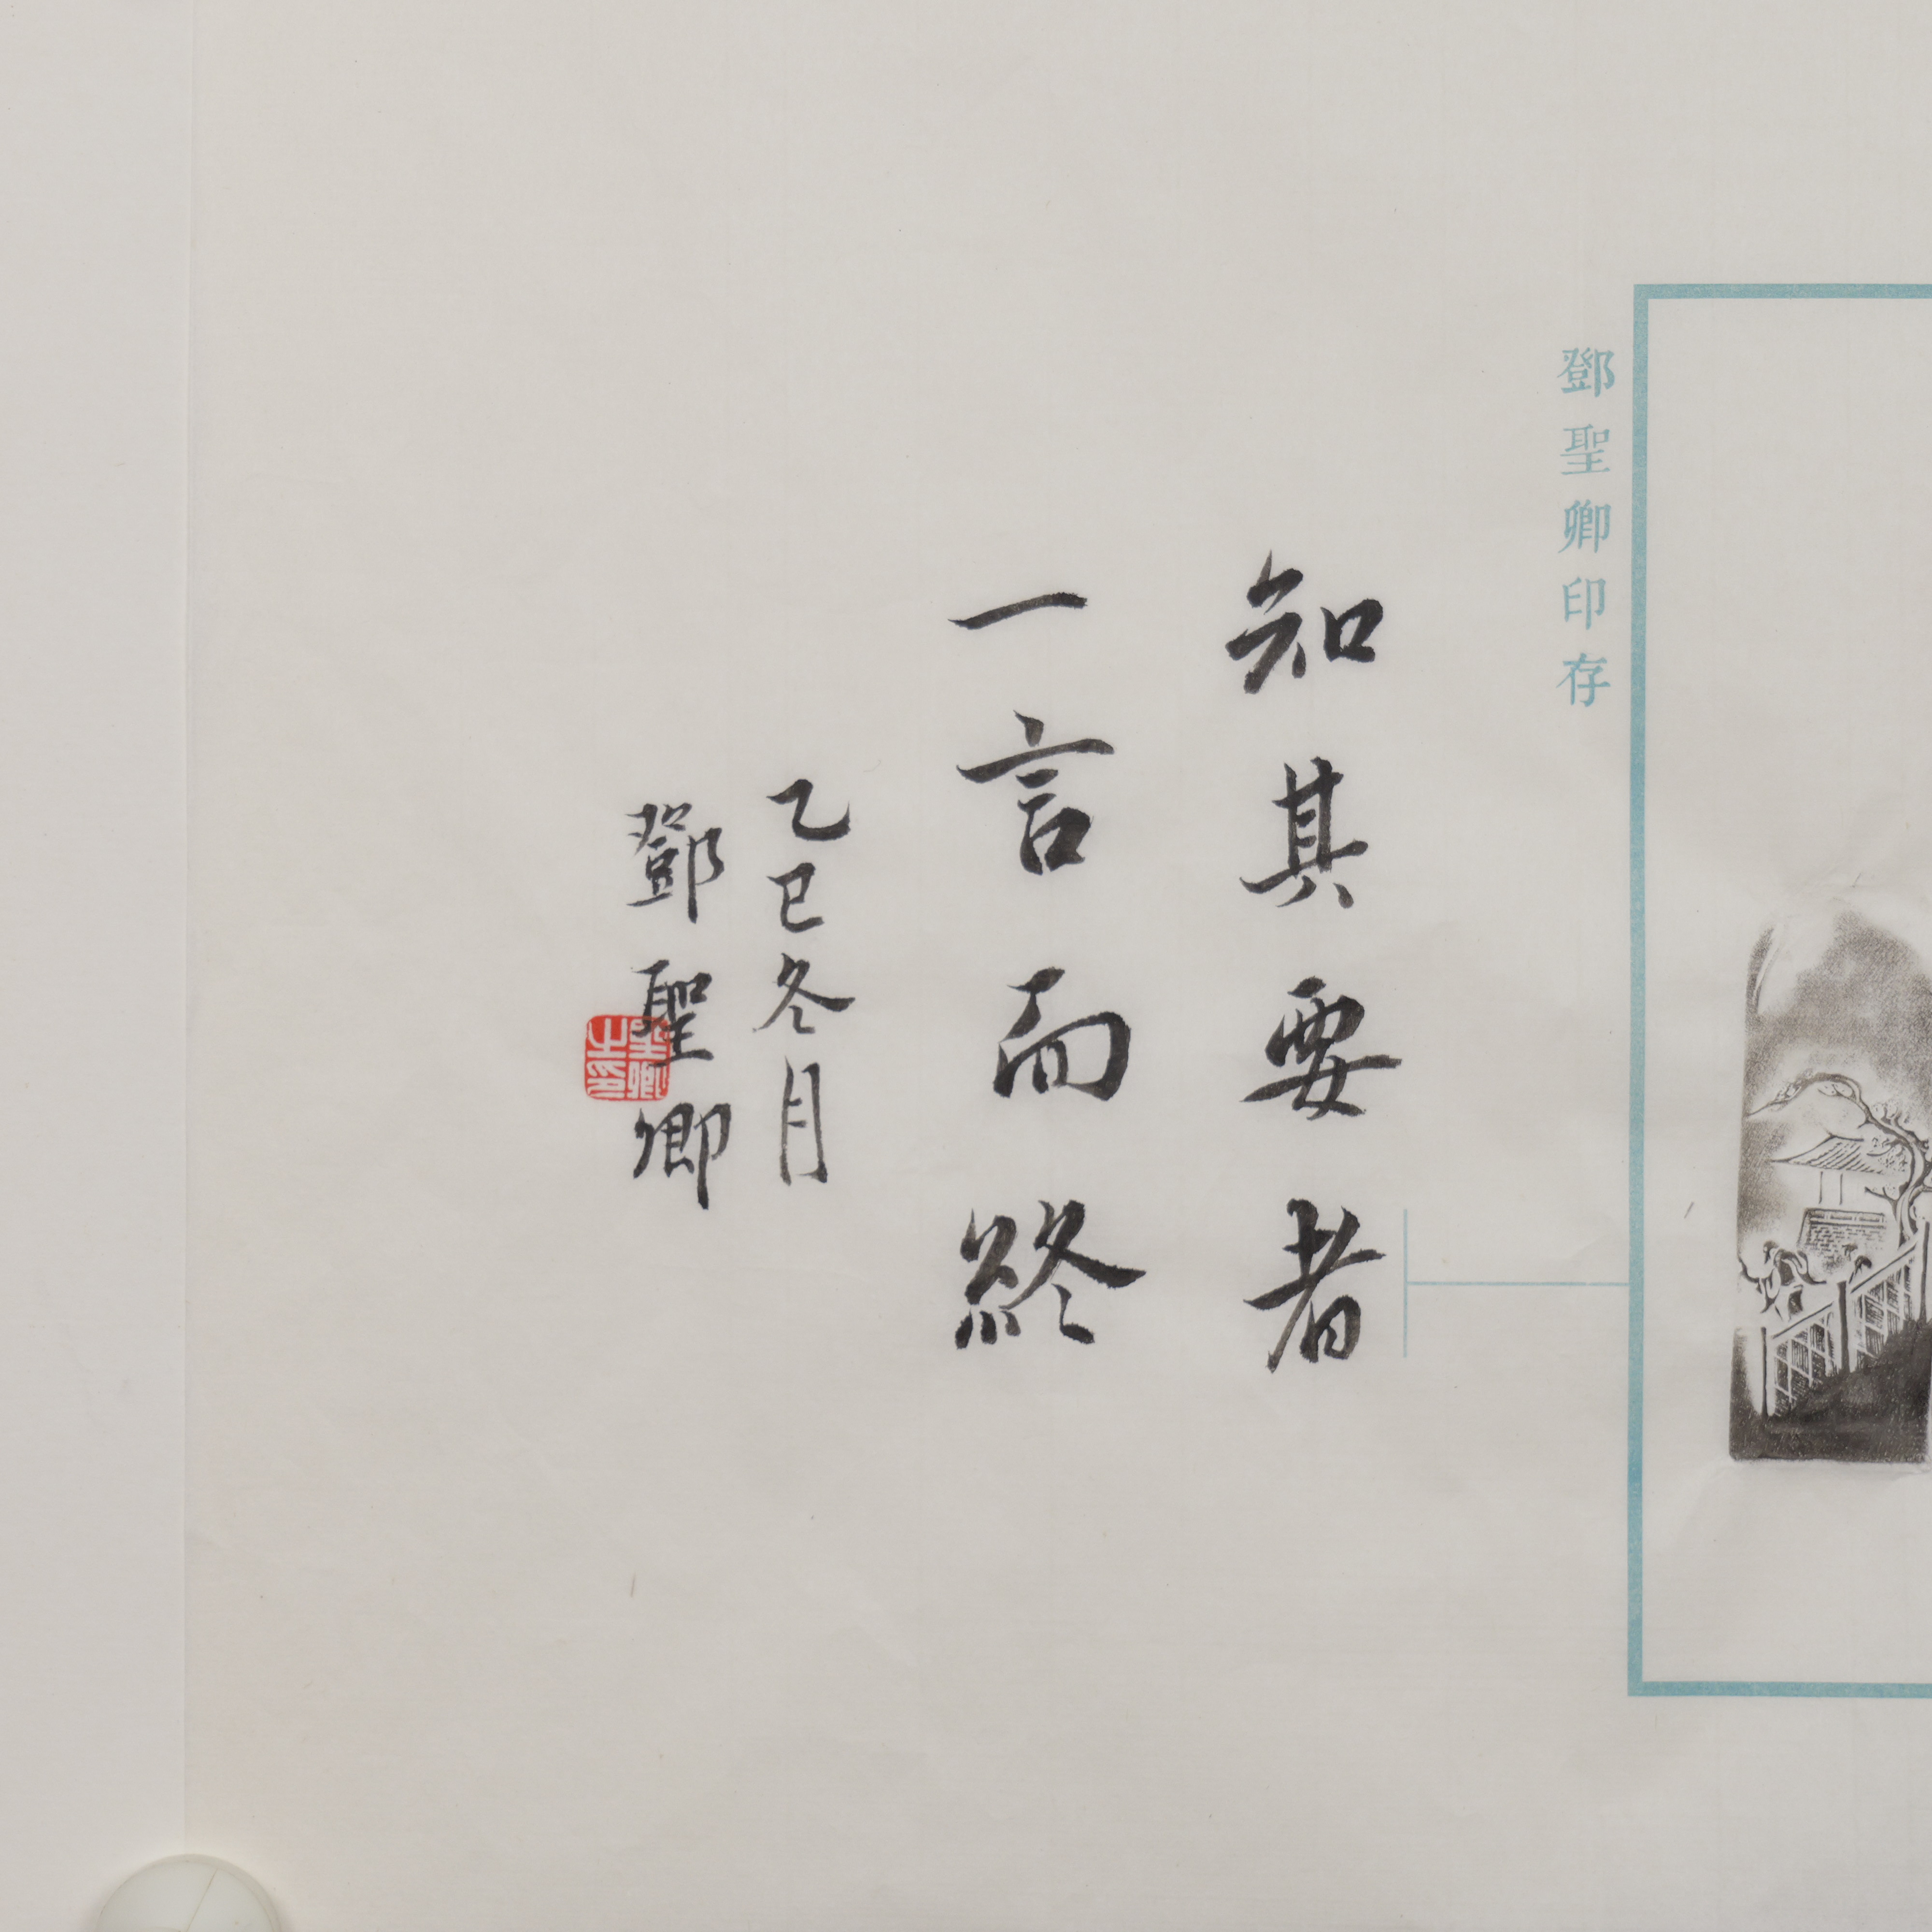 鄧聖卿印存
知其要者
一言而終
乙巳冬月
鄧聖卿
聖卿之印